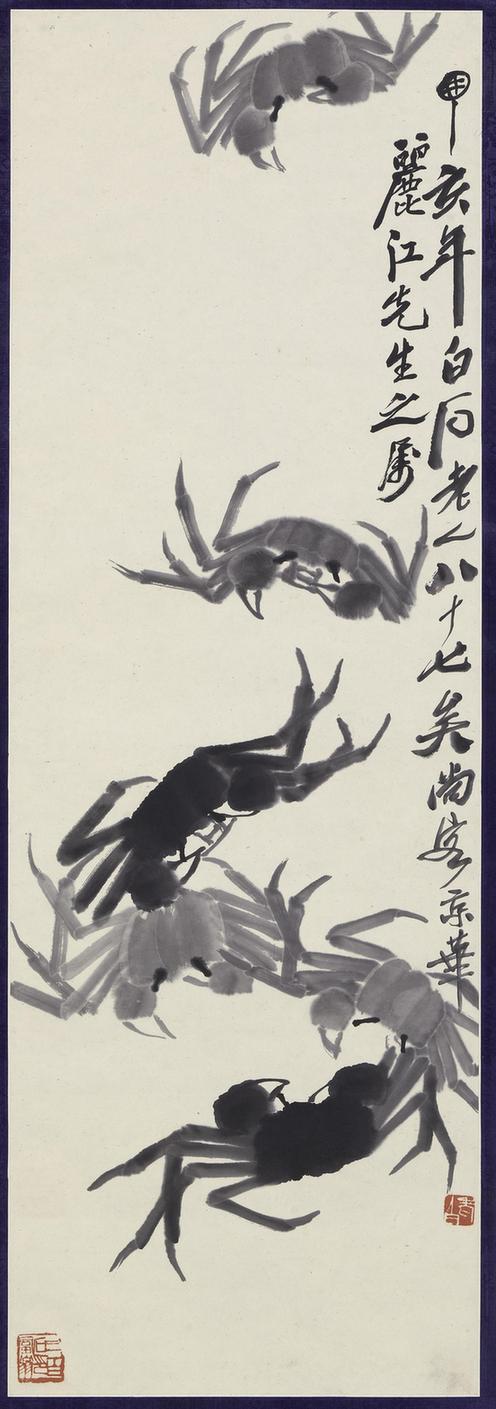 甲亥年白石老人八十七矣尚客京華
麗江先生之属